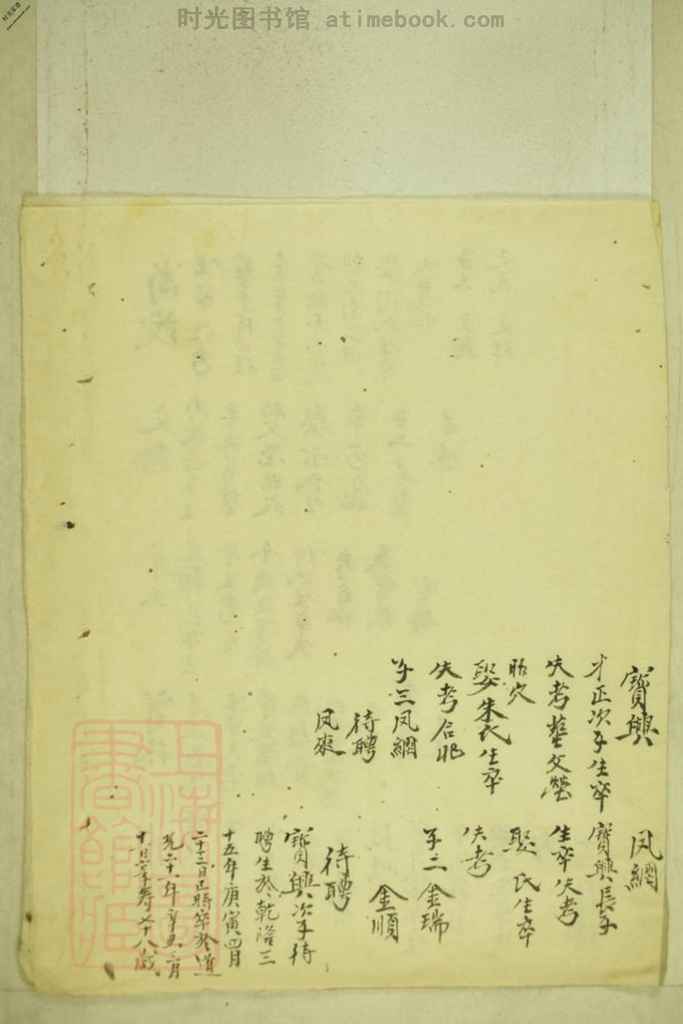 时光图书馆 atimebook.com
寶興
才正次子生卒
失考葬父塋
昭穴
娶朱氏生卒
失考合
子三 鳳網
待聘
鳳來
鳳網
寶興長子
生卒失考
娶 氏生卒
失考
子二 金瑞
金順
待聘
寶興次子待
聘生於乾隆三
十五年庚寅四月
二十三日巳時卒於道
光二十 年辛丑 月
十 日 壽七十八歲